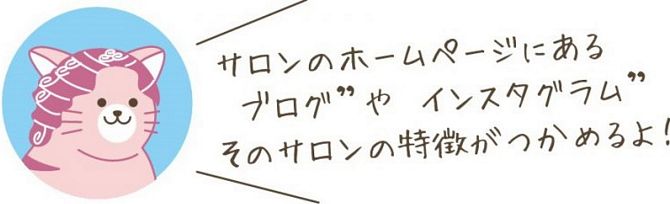 サロンのホームページにある
ブログ”や インスタグラム”
そのサロンの特徴がつかめるよ!